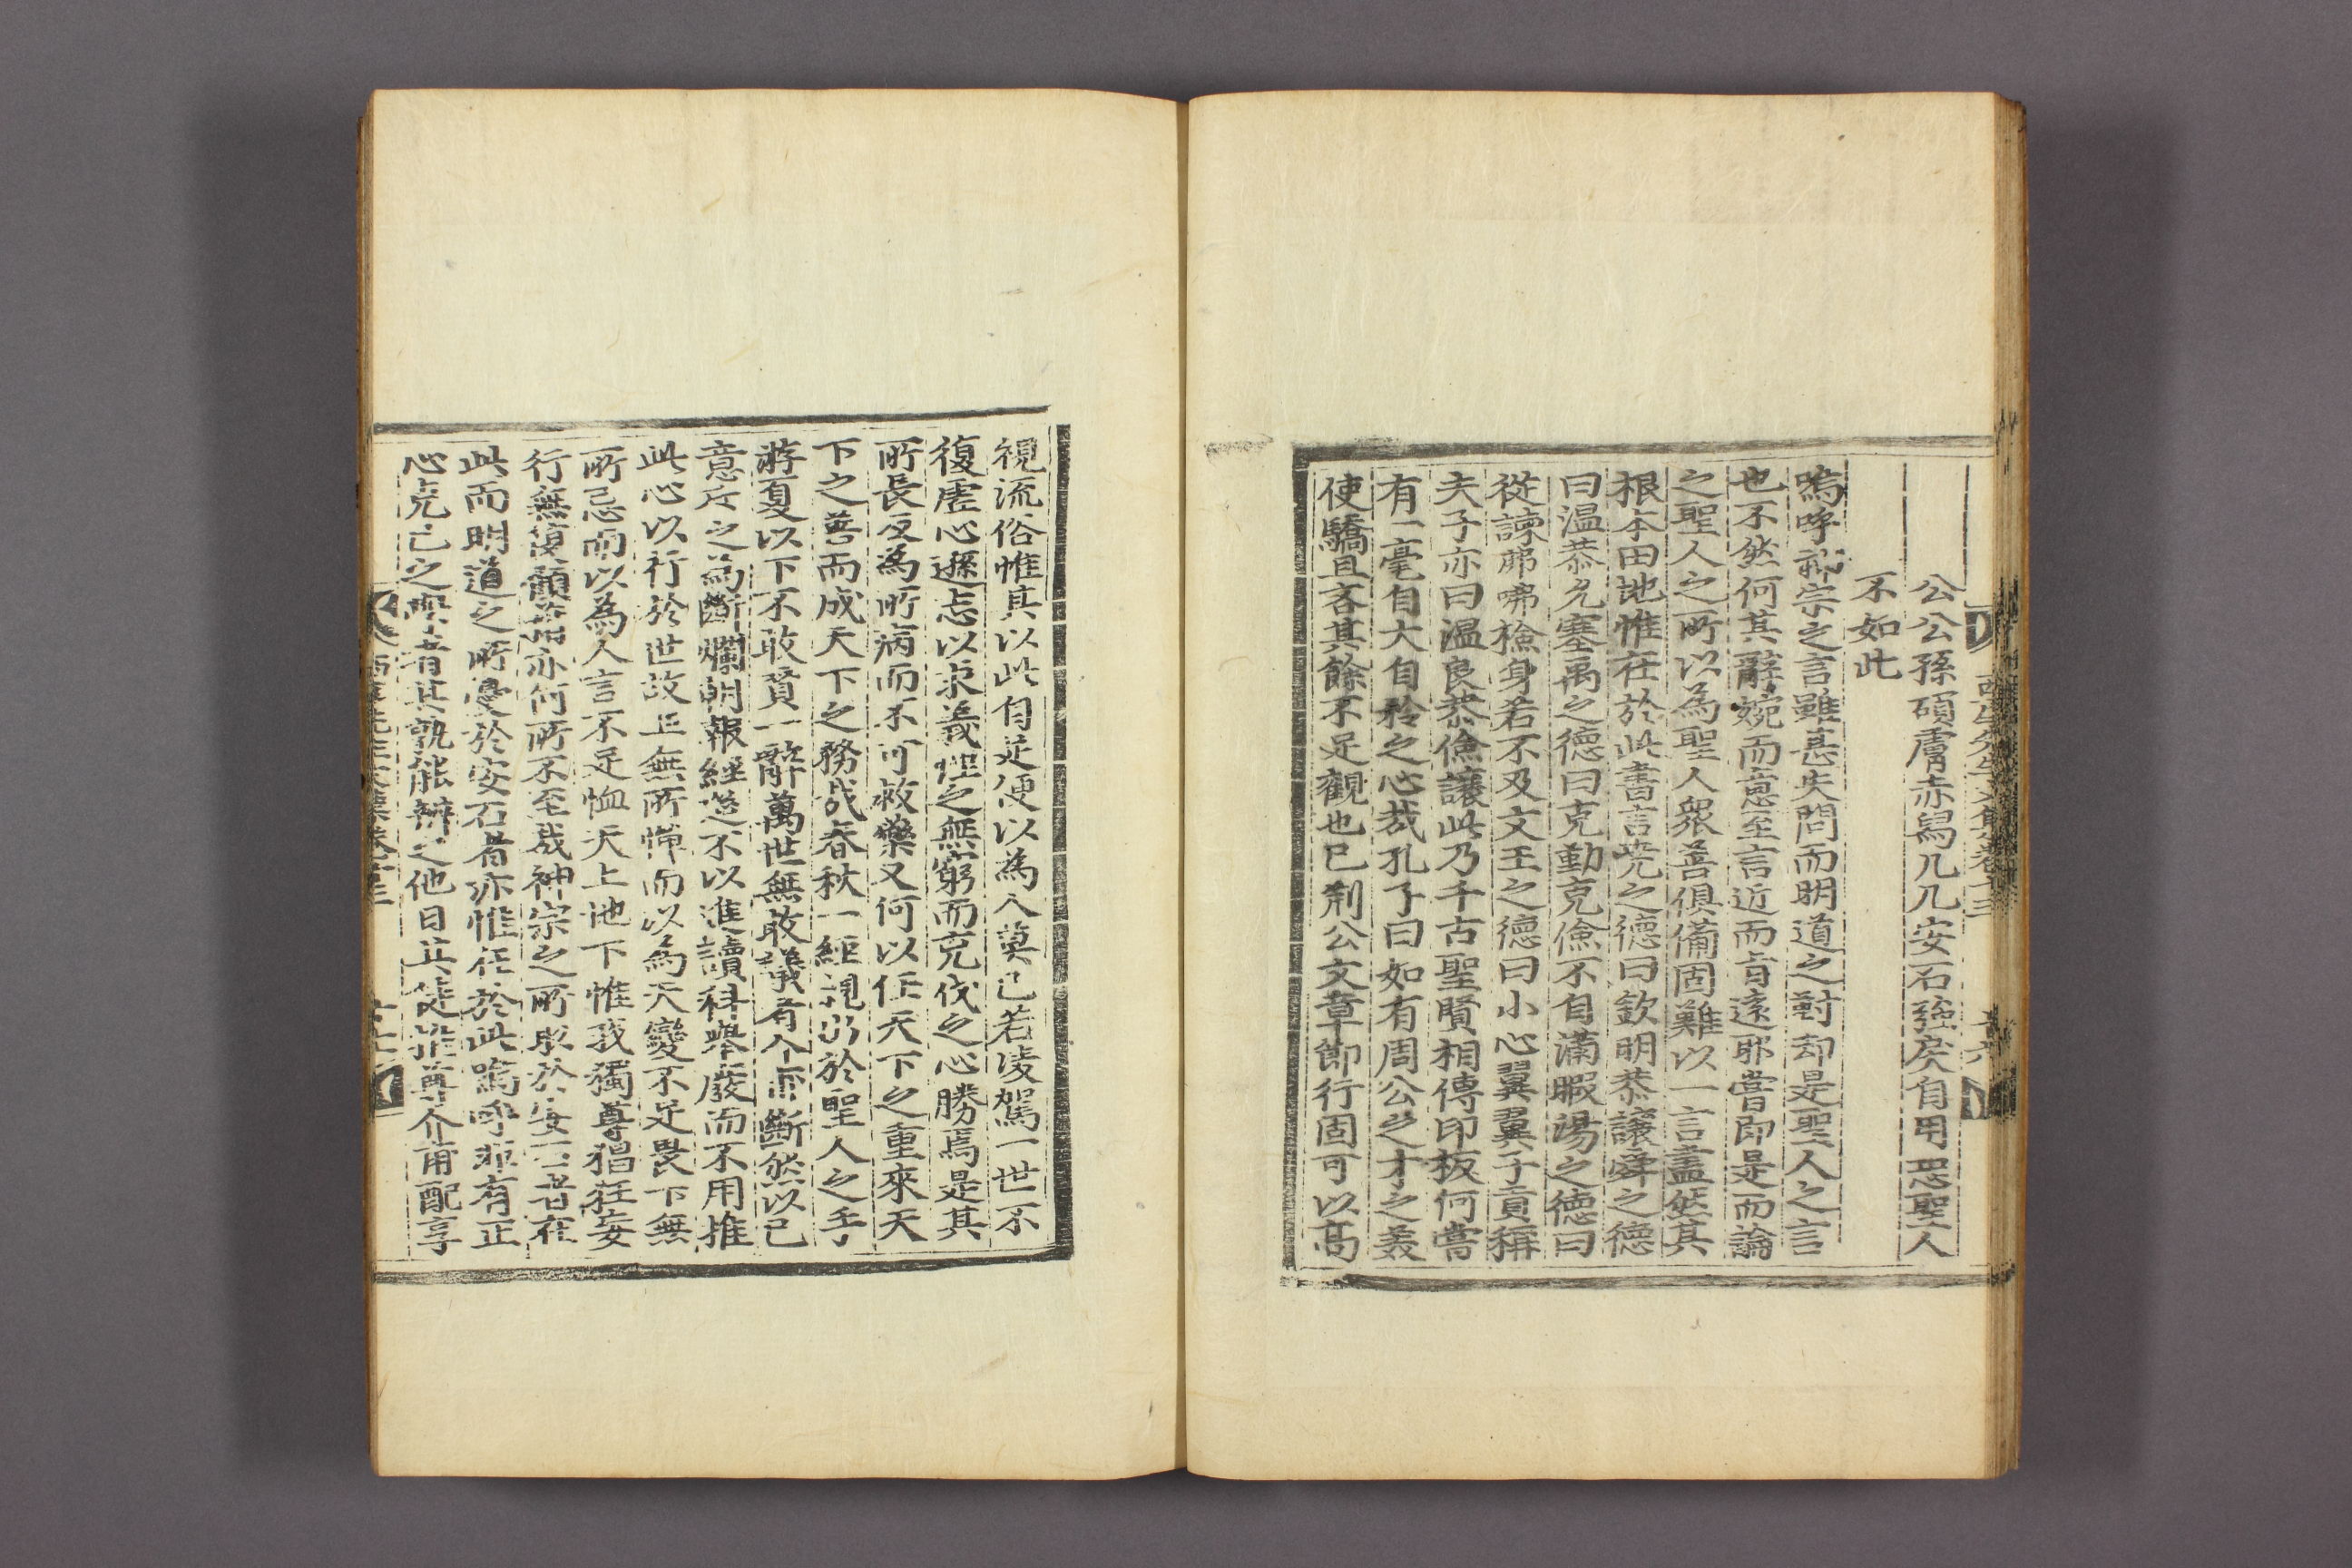 公公孫碩膚赤舄几几安石強戾自用恐聖人
不如此
嗚呼神宗之言雖甚失問而明道之對却是聖人之言
也不然何其辭婉而意至言近而旨遠耶嘗即是而論
之聖人之所以為聖人衆善俱備固難以一言盡然其
根本田地惟在於此書言堯之德曰欽明恭讓舜之德
曰温恭允塞禹之德曰克勤克儉不自滿暇湯之德曰
從諫弗咈檢身若不及文王之德曰小心翼翼子貢稱
夫子亦曰温良恭儉讓此乃千古聖賢相傳印板何嘗
有一毫自大自矜之心哉孔子曰如有周公之才之美
使驕且吝其餘不足觀也已荆公文章節行固可以高
視流俗惟其以此自足便以為人莫己若凌駕一世不
復虛心遜志以求義理之無窮而克伐之心勝焉是其
所長反為所病而不可救藥又何以任天下之重來天
下之善而成天下之務哉春秋一經親仍於聖人之手
游夏以下不敢贊一辭萬世無敢議者介甫斷然以己
意斥之為斷爛朝報經筵不以進讀科舉廢而不用推
此心以行於世故上無所憚而以為天變不足畏下無
所忌而以為人言不足恤天上地下惟我獨尊猖狂妄
行無復顧藉亦何所不至哉神宗之所取於安石者在
此而明道之所憂於安石者亦惟在於此嗚呼非有正
心克己之學者其孰能辨之他日其徒推尊介甫配享